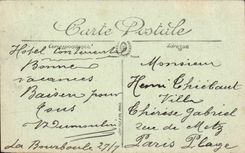 Carte Postale
Correspondance
Adresse
Hôtel Continental
Bonne
vacances
Baiser pour
tous
V. Dumoulin
La Bourboule 27/7
Monsieur
Henri Thiébaut
Villa
Thérèse Gabriel
rue de Metz
Paris Plage